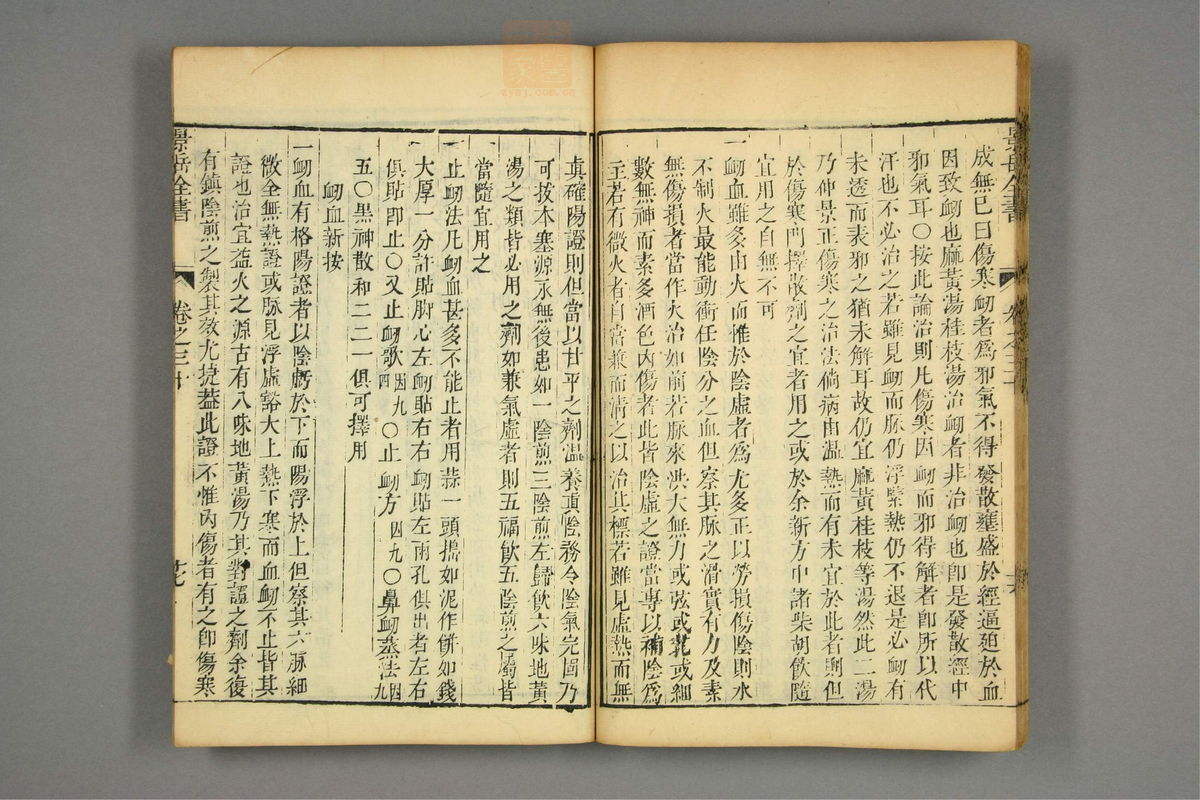 景岳全書
成無已曰傷寒衂者爲邪氣不得發散壅盛於經逼廹於血
因致衂也麻黃湯桂枝湯治衂者非治衂也卽是發散經中
邪氣耳〇按此論治則凡傷寒因衂而邪得解者卽所以代
汗也不必治之若雖見衂而脈仍浮緊熱仍不退是必衂有
未透而表邪之猶未解耳故仍宜麻黃桂枝等湯然此二湯
乃仲景正傷寒之治法倘病由溫熱而有未宜於此者則但
於傷寒門擇散劑之宜者用之或於余新方中諸柴胡飮隨
宜用之自無不可
一衂血雖多由火而惟於陰虛者爲尤多正以勞損傷陰則水
不制火最能動衝任陰分之血但察其脈之滑實有力及素
無傷損者當作火治如前若脈來洪大無力或弦或芤或細
數無神而素多酒色內傷者此皆陰虛之證當專以補陰爲
主若有微火者自當兼而淸之以治其標若雖見虛熱而無
眞確陽證則但當以甘平之劑溫養眞陰務令陰氣完固乃
可拔本塞源永無後患如一陰煎三陰煎左歸飮六味地黃
湯之類皆必用之劑如兼氣虛者則五福飮五陰煎之屬皆
當隨宜用之
一止衂法凡衂血甚多不能止者用蒜一頭搗如泥作餠如錢
大厚一分許貼脚心左衂貼右右衂貼左兩孔俱出者左右
俱貼卽止〇又止衂歌因九四〇止衂方因四九〇鼻衂蒸法因九
五〇黑神散和二二一俱可擇用
衂血新按
一衂血有格陽證者以陰虧於下而陽浮於上但察其六脈細
微全無熱證或脈見浮虛豁大上熱下寒而血衂不止皆其
證也治宜益火之源古有八味地黃湯乃其對證之劑余復
有鎭陰煎之製其效尤捷葢此證不惟內傷者有之卽傷寒
景岳全書
卷之三十
zysj.com.cn